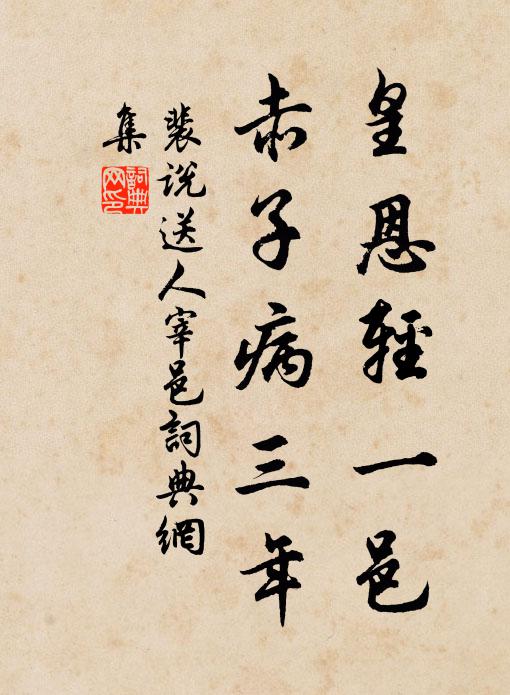 皇恩輕一邑
赤子病三年
裴說送人宰邑詞典網
集
詞典
网印